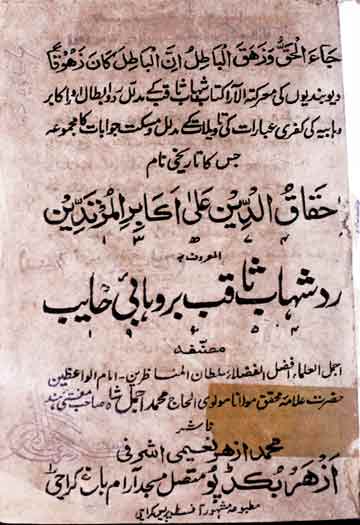 جَاءَ الْحَقُّ وَزَهَقَ الْبَاطِلُ اِنَّ الْبَاطِلَ كَانَ زَهُوْقًا
دیوبندیوں کی معرکۃ الآراء کتاب شہاب ثاقب کے مدلل رد و ابطال اور اکابر
وہابیہ کی کفری عبارات کی تاویلات کے مدلل و مسکت جوابات کا مجموعہ
جس کا تاریخی نام
احقاقُ الدِّین عَلیٰ اَکَابِرِ الْمُرْتَدِّیْن
۱۳ھ۷۴
المعروف بہ
رد شہاب ثاقب بر وہابی خایب
۱۹۵۴
مصنفہ
اجمل العلماء افضل الفضلاء سلطان المناظرین۔ امام الواعظین
حضرت علامہ محقق مولانا مولوی الحاج محمد اجمل شاہ صاحب مفتی ہند
ناشر
محمد ازھر نعیمی اشرفی
اَزْھَر بُکڈپو متصل مسجد آرام باغ کراچی
مطبوعہ مشہور آفسٹ پریس کراچی